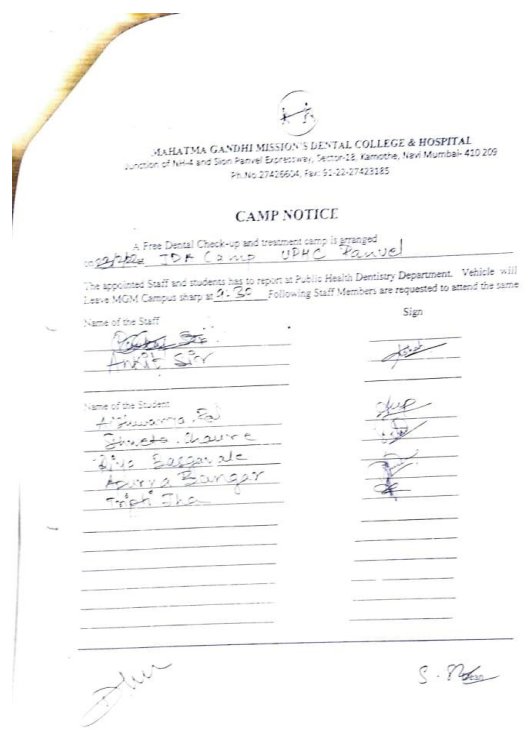 MAHATMA GANDHI MISSION'S DENTAL COLLEGE & HOSPITAL
Junction of NH-4 and Sion Panvel Expressway, Sector-18, Kamothe, Navi Mumbai- 410 209
Ph.No.27426604, Fax: 91-22-27423185
CAMP NOTICE
A Free Dental Check-up and treatment camp is arranged
on IDA Camp UPHC Panvel
The appointed Staff and students has to report at Public Health Dentistry Department. Vehicle will
Leave MGM Campus sharp at 9:30 Following Staff Members are requested to attend the same
Name of the Staff Sign
Sir
Ankit Sir
Name of the Student
Aishwarya
Shweta
Apurva Bangar
Tripti Jha